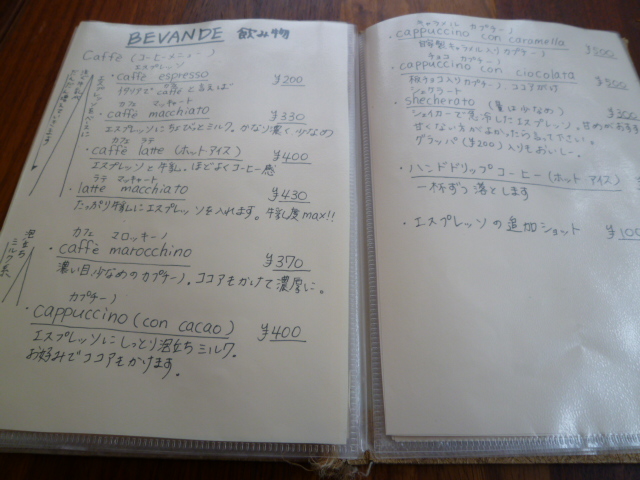 BEVANDE 飲み物
Caffè (コーヒーメニュー)
エスプレッソ
・caffè espresso ¥200
イタリアで caffè と言えば
カフェ マッキャート
・caffè macchiato ¥330
エスプレッソにちょびっとミルク。かなり濃く少なめ
カフェ ラテ
・caffè latte (ホット・アイス) ¥400
エスプレッソと牛乳。ほどよくコーヒー感
ラテ マッキャート
・latte macchiato ¥430
たっぷり牛乳にエスプレッソを入れます。牛乳度max!!
泡立ち
ミルク系
カフェ マロッキーノ
・caffè marocchino ¥370
濃い目、少なめのカプチーノ。ココアもかけて濃厚に。
カプチーノ
・cappuccino (con cacao) ¥400
エスプレッソにしっとり泡立ちミルク。
お好みでココアもかけます。
キャラメル カプチーノ
・cappuccino con caramella ¥500
自家製キャラメル入りカプチーノ
チョコ カプチーノ
・cappuccino con cioccolata ¥500
チョコ入りカプチーノ、ココアがけ
シェケラート
・shecherato (量は少なめ) ¥300
シェイカーで急冷したエスプレッソ。甘めがお
甘くない方がよかったら言って下さい。
グラッパ(¥200)入りもおいしー。
・ハンドドリップコーヒー (ホット アイス)
一杯ずつ落とします
・エスプレッソの追加ショット ¥100